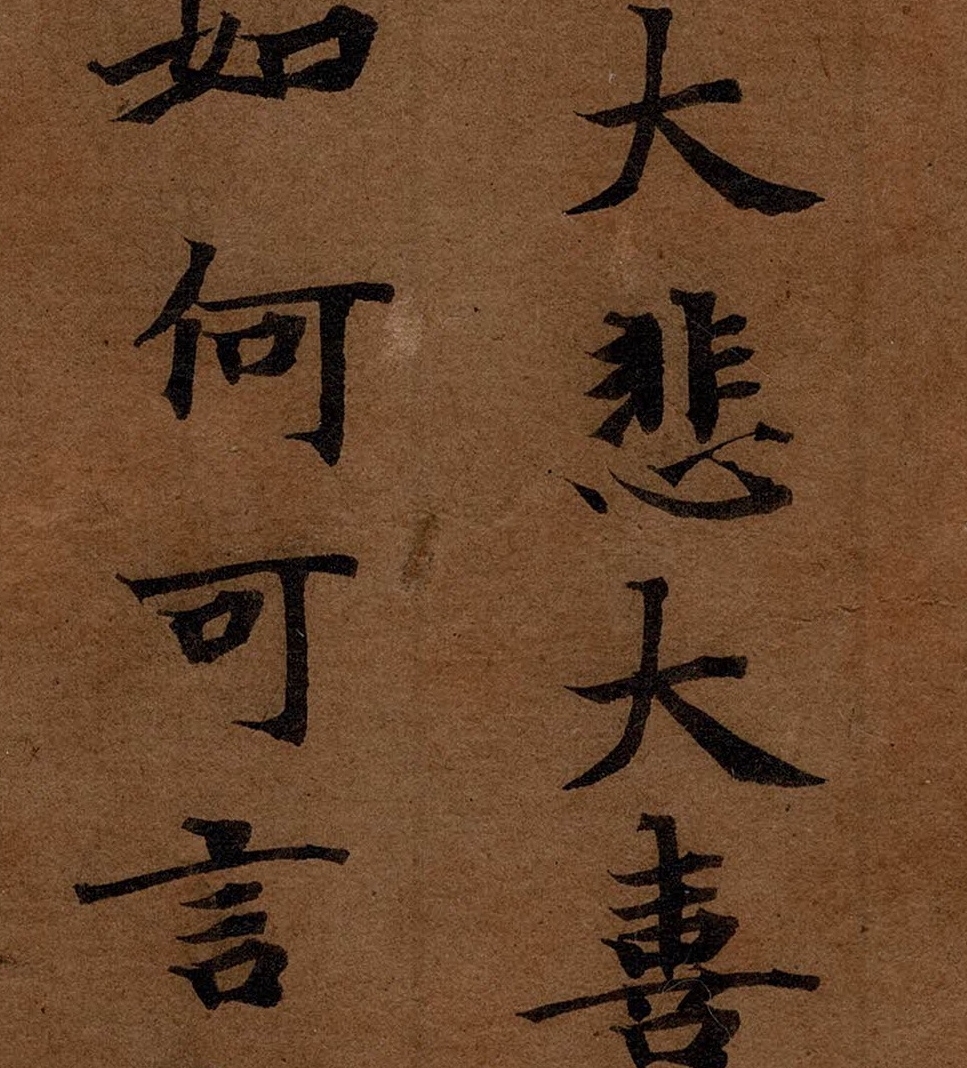 大悲大喜
如何可言